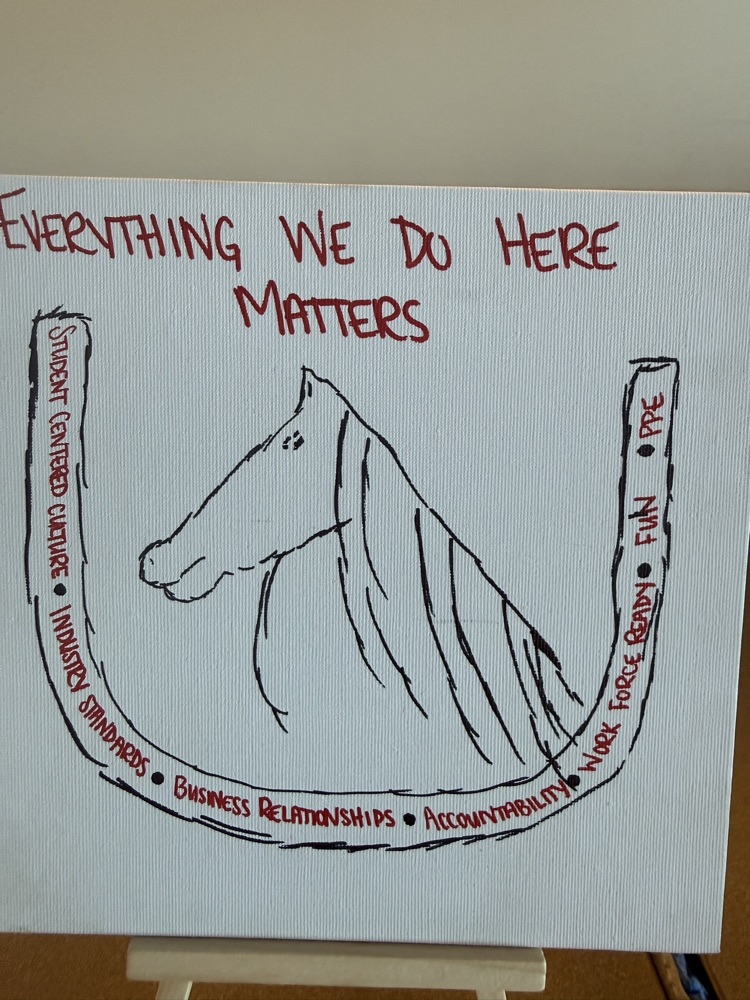 EVERYTHING WE DO HERE
MATTERS
STUDENT CENTERED CULTURE • INDUSTRY STANDARDS • BUSINESS RELATIONSHIPS • ACCOUNTABILITY • WORK FORCE READY • FUN • PPE